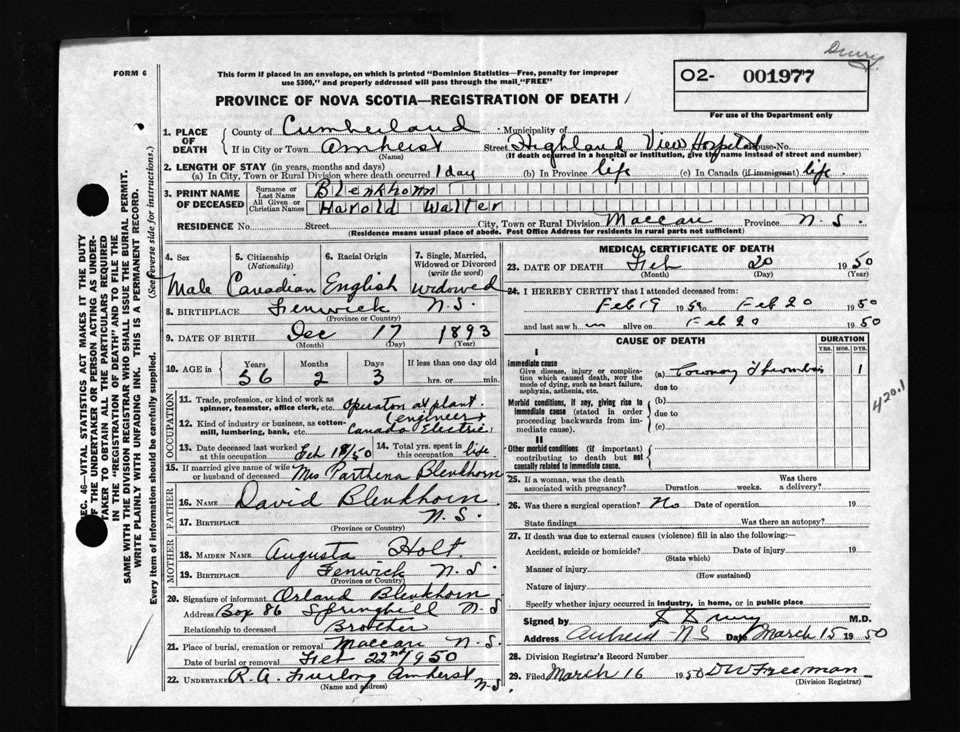 Drury
FORM 6
This form if placed in an envelope, on which is printed "Dominion Statistics—Free, penalty for improper
use $300," and properly addressed will pass through the mail "FREE"
O2- 001977
For use of the Department only
PROVINCE OF NOVA SCOTIA—REGISTRATION OF DEATH
SEC. 46—VITAL STATISTICS ACT MAKES IT THE DUTY
OF THE UNDERTAKER OR PERSON ACTING AS UNDER-
TAKER TO OBTAIN ALL THE PARTICULARS REQUIRED
IN THE "REGISTRATION OF DEATH" AND TO FILE THE
SAME WITH THE DIVISION REGISTRAR WHO SHALL ISSUE THE BURIAL PERMIT.
WRITE PLAINLY WITH UNFADING INK. THIS IS A PERMANENT RECORD.
Every item of information should be carefully supplied. (See reverse side for instructions.)
1. PLACE OF DEATH County of Cumberland Municipality of
If in City or Town Amherst Street Highland View Hospital House-No.
(Name) (If death occurred in a hospital or institution, give the name instead of street and number)
2. LENGTH OF STAY (in years, months and days)
(a) In City, Town or Rural Division where death occurred 1 day (b) In Province life (c) In Canada (if immigrant) life.
3. PRINT NAME OF DECEASED Surname or Last Name Blenkhorn
All Given or Christian Names Harold Walter
RESIDENCE No. Street City, Town or Rural Division Maccan Province N.S.
(Residence means usual place of abode. Post Office Address for residents in rural parts not sufficient)
4. Sex 5. Citizenship (Nationality) 6. Racial Origin 7. Single, Married, Widowed or Divorced (write the word)
Male Canadian English Widowed
8. BIRTHPLACE Fenwick N.S.
(Province or Country)
9. DATE OF BIRTH Dec 17 1893
(Month) (Day) (Year)
10. AGE in Years Months Days If less than one day old
56 2 3 hrs. or min.
OCCUPATION
11. Trade, profession, or kind of work as spinner, teamster, office clerk, etc. Operator at plant.
engineer
12. Kind of industry or business, as cotton-mill, lumbering, bank, etc. Canada Electric
13. Date deceased last worked at this occupation Feb 18/50 14. Total yrs. spent in this occupation life
15. If married give name of wife or husband of deceased Mrs Parthena Blenkhorn
FATHER
16. NAME David Blenkhorn
17. BIRTHPLACE N.S.
(Province or Country)
MOTHER
18. MAIDEN NAME Augusta Holt.
19. BIRTHPLACE Fenwick N.S.
(Province or Country)
20. Signature of informant Orland Blenkhorn
Address Box 86 Springhill N.S
Relationship to deceased Brother
21. Place of burial, cremation or removal Maccan N.S.
Date of burial or removal Feb 22nd 1950
22. UNDERTAKER R.A. Furlong Amherst N-S
(Name and address)
MEDICAL CERTIFICATE OF DEATH
23. DATE OF DEATH Feb 20 1950
(Month) (Day) (Year)
24. I HEREBY CERTIFY that I attended deceased from:
Feb 19 1950 Feb 20 1950
and last saw h im alive on Feb 20 1950
CAUSE OF DEATH DURATION
YRS. MOS. DYS.
I
Immediate cause
Give disease, injury or complication which caused death, not the mode of dying, such as heart failure, asphyxia, asthenia, etc.
(a) Coronary Thrombosis 1
due to
Morbid conditions, if any, giving rise to immediate cause (stated in order proceeding backwards from immediate cause).
(b)
due to
(c)
420.1
II
Other morbid conditions (if important) contributing to death but not causally related to immediate cause.
25. If a woman, was the death associated with pregnancy? Duration weeks. Was there a delivery?
26. Was there a surgical operation? No Date of operation 19
State findings Was there an autopsy?
27. If death was due to external causes (violence) fill in also the following:—
Accident, suicide or homicide? Date of injury 19
(State which)
Manner of injury
(How sustained)
Nature of injury
Specify whether injury occurred in industry, in home, or in public place
Signed by Drury M.D.
Address Amherst NS Date March 15 1950
28. Division Registrar's Record Number
29. Filed March 16 1950 DW Freeman
(Division Registrar)